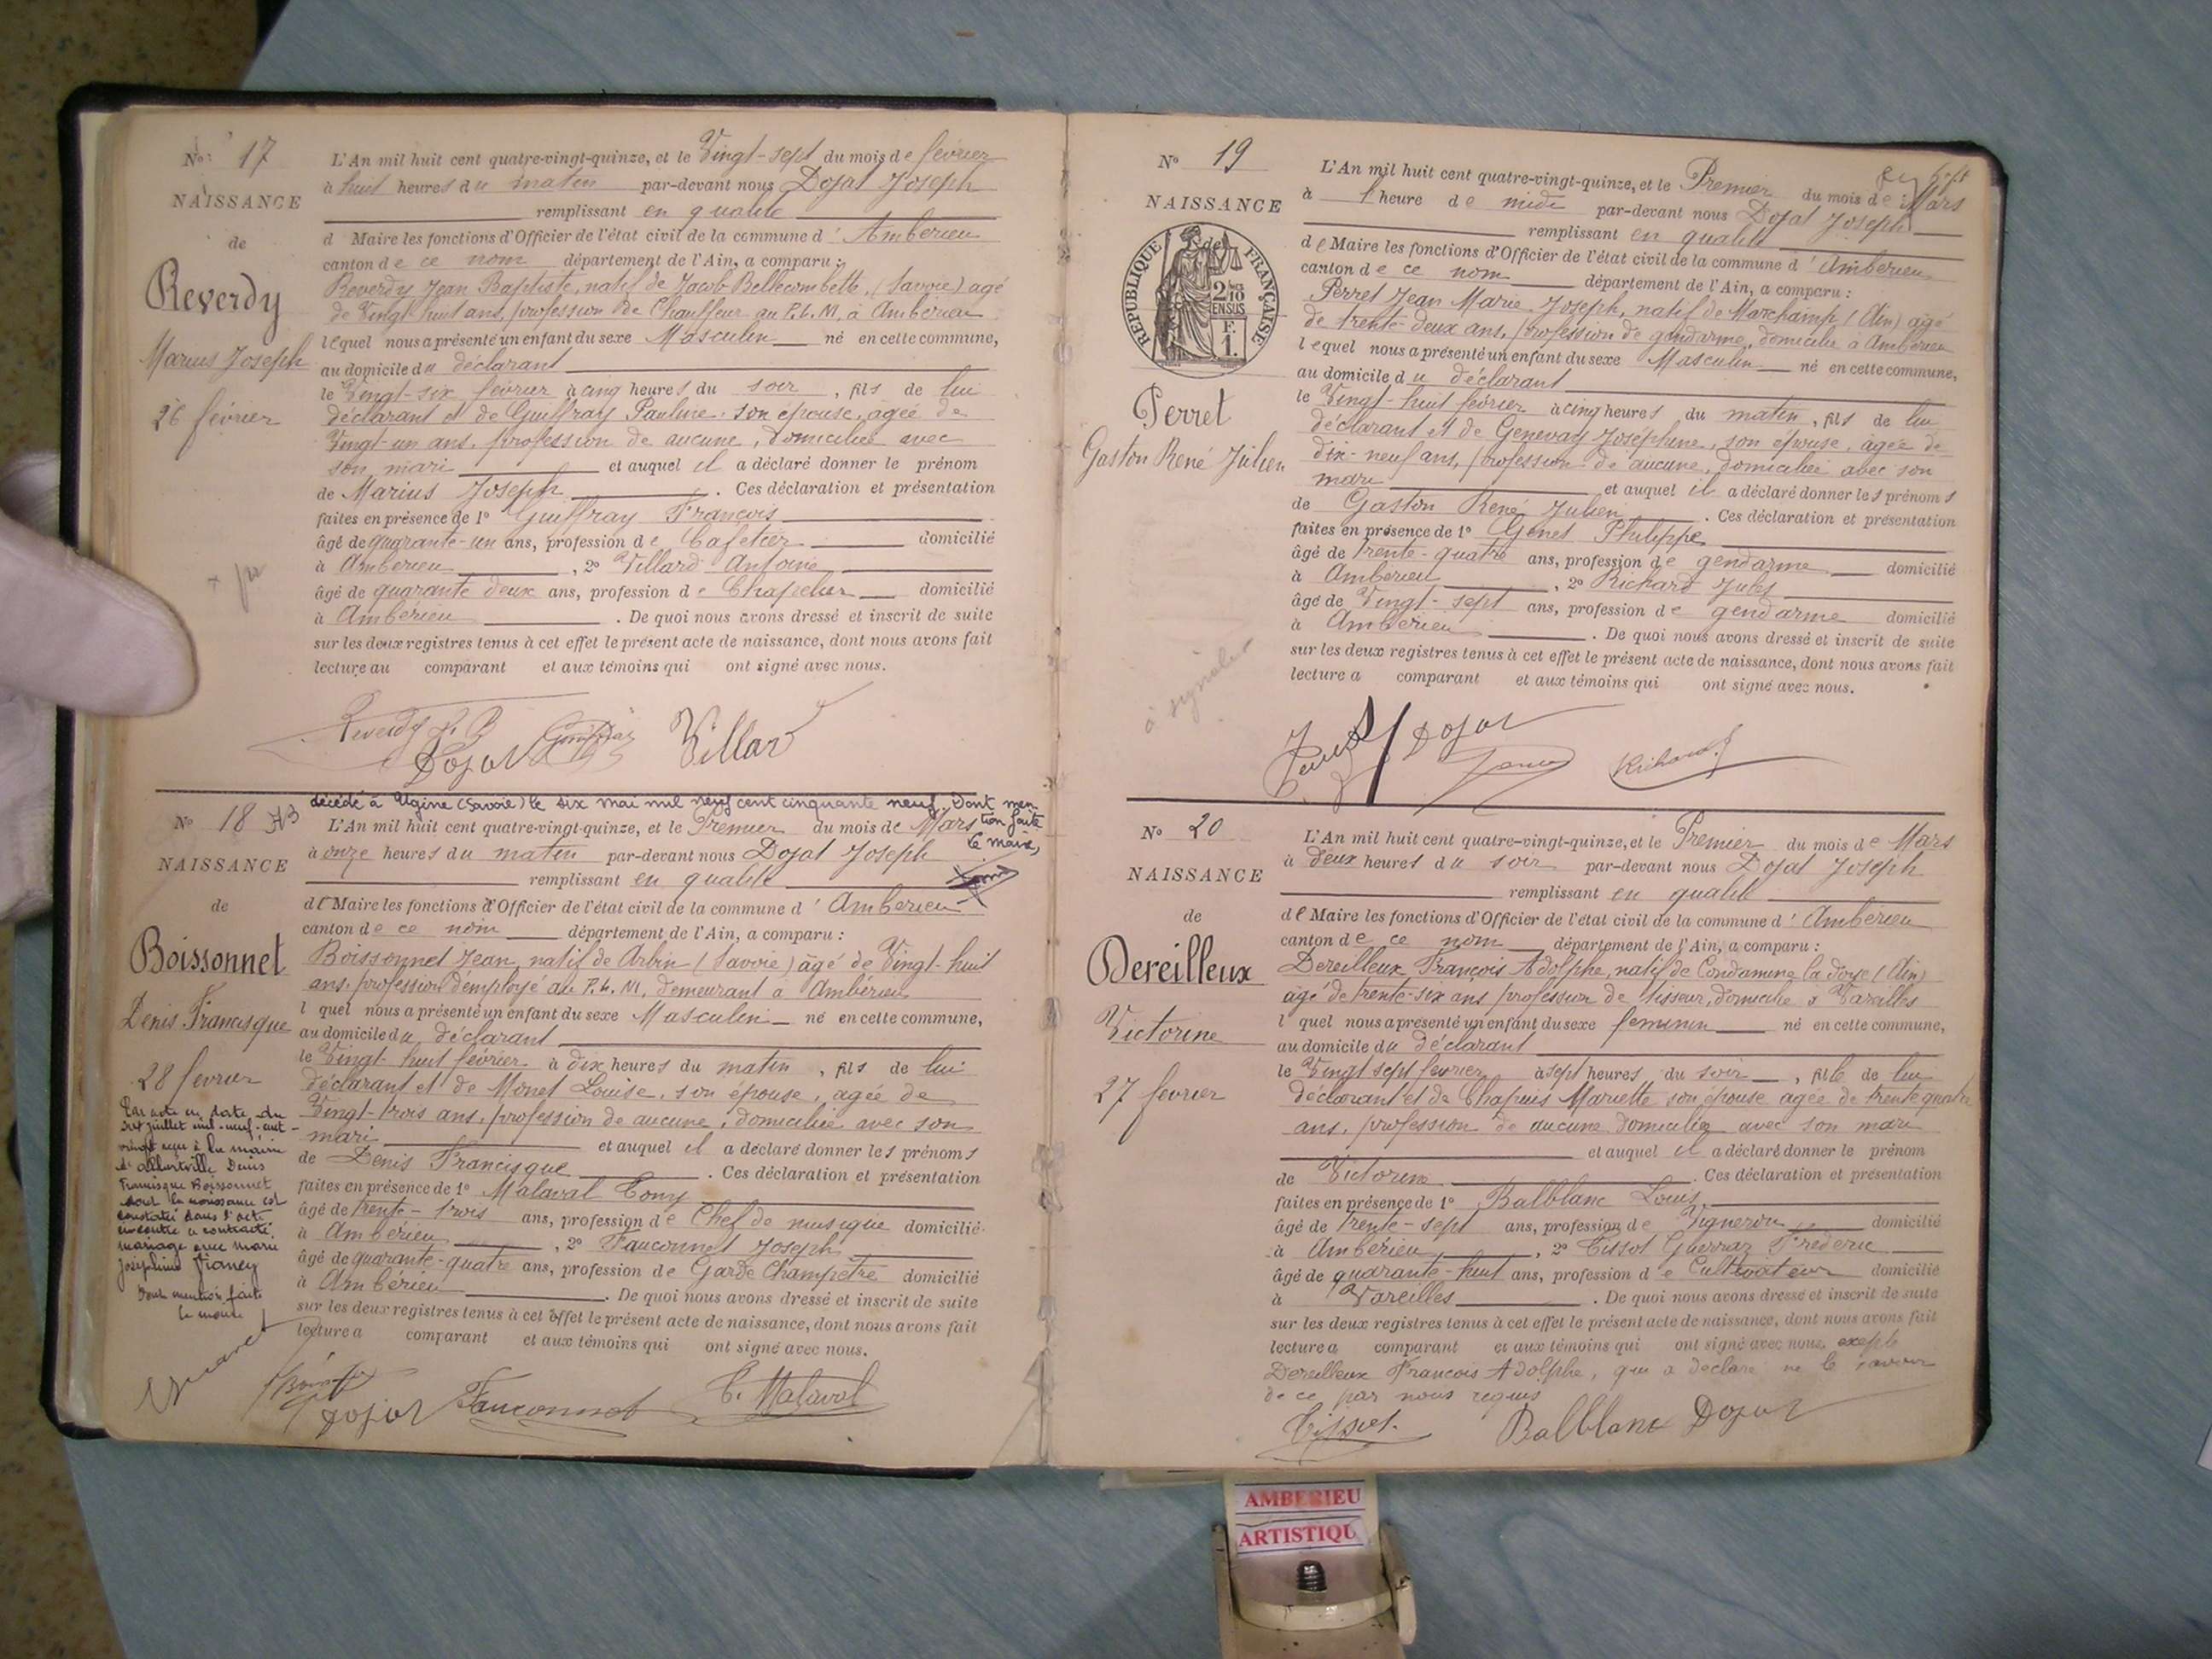 No 17
NAISSANCE
de
Reverdy
Marius Joseph
26 février
L'An mil huit cent quatre-vingt-quinze, et le Vingt-sept du mois de février
à huit heures du matin par-devant nous Dojat Joseph
remplissant en qualité
d Maire les fonctions d'Officier de l'état civil de la commune d' Ambérieu
canton de ce nom département de l'Ain, a comparu :
Reverdy Jean Baptiste, natif de Jacob Bellecombette, (Savoie) agé
de Vingt huit ans, profession de Chauffeur au P.L.M. à Ambérieu
lequel nous a présenté un enfant du sexe Masculin né en cette commune,
au domicile du déclarant
le Vingt-six février à cinq heures du soir, fils de lui
déclarant et de Guiffray Pauline, son épouse, agée de
Vingt-un ans, profession de aucune, domiciliée avec
son mari et auquel il a déclaré donner le prénom
de Marius Joseph. Ces déclaration et présentation
faites en présence de 1° Guiffray François
âgé de quarante-un ans, profession de Cafetier domicilié
à Ambérieu, 2° Villard Antoine
âgé de quarante deux ans, profession de Chapelier domicilié
à Ambérieu. De quoi nous avons dressé et inscrit de suite
sur les deux registres tenus à cet effet le présent acte de naissance, dont nous avons fait
lecture au comparant et aux témoins qui ont signé avec nous.
Reverdy J. B
Dojat
Villard
décédé à Ugine (Savoie) le six mai mil neuf cent cinquante neuf. Dont men-
tion faite
le maire,
No 18
NAISSANCE
de
Boissonnet
Denis Francisque
28 février
Par acte en date du
juillet mil-neuf-cent-
vingt reçu à la mairie
d'Albertville Denis
Francisque Boissonnet
dont la naissance est
constatée dans l'acte
ci-contre a contracté
mariage avec Marie
Joséphine Francy
Dont mention faite
le maire
L'An mil huit cent quatre-vingt-quinze, et le Premier du mois de Mars
à onze heures du matin par-devant nous Dojat Joseph
remplissant en qualité
de Maire les fonctions d'Officier de l'état civil de la commune d' Ambérieu
canton de ce nom département de l'Ain, a comparu :
Boissonnet Jean, natif de Arbin (Savoie) âgé de Vingt-huit
ans, profession d'employé au P.L.M, demeurant à Ambérieu
l quel nous a présenté un enfant du sexe Masculin né en cette commune,
au domicile du déclarant
le Vingt-huit février à dix heures du matin, fils de lui
déclarant et de Monet Louise, son épouse, agée de
Vingt-trois ans, profession de aucune, domiciliée avec son
mari et auquel il a déclaré donner les prénoms
de Denis Francisque. Ces déclaration et présentation
faites en présence de 1° Malaval Tony
âgé de trente-trois ans, profession de Chef de musique domicilié
à Ambérieu, 2° Fauconnet Joseph
âgé de quarante-quatre ans, profession de Garde Champetre domicilié
à Ambérieu. De quoi nous avons dressé et inscrit de suite
sur les deux registres tenus à cet effet le présent acte de naissance, dont nous avons fait
lecture a comparant et aux témoins qui ont signé avec nous.
Dojat Fauconnet T. Malaval
No 19
NAISSANCE
de
REPUBLIQUE FRANÇAISE
2/10
EN SUS
F.
1.
Perret
Gaston René Julien
à signaler
L'An mil huit cent quatre-vingt-quinze, et le Premier du mois de Mars
à 1 heure de midi par-devant nous Dojat Joseph
remplissant en qualité
de Maire les fonctions d'Officier de l'état civil de la commune d' Ambérieu
canton de ce nom département de l'Ain, a comparu :
Perret Jean Marie Joseph, natif de Marchamp (Ain) agé
de trente-deux ans, profession de gendarme, domicilié à Ambérieu
lequel nous a présenté un enfant du sexe Masculin né en cette commune,
au domicile du déclarant
le Vingt-huit février à cinq heures du matin, fils de lui
déclarant et de Genevay Joséphine, son épouse, agée de
dix-neuf ans, profession de aucune, domiciliée avec son
mari et auquel il a déclaré donner les prénoms
de Gaston René Julien. Ces déclaration et présentation
faites en présence de 1° Genet Philippe
âgé de trente-quatre ans, profession de gendarme domicilié
à Ambérieu, 2° Richard Jules
âgé de Vingt-sept ans, profession de gendarme domicilié
à Ambérieu. De quoi nous avons dressé et inscrit de suite
sur les deux registres tenus à cet effet le présent acte de naissance, dont nous avons fait
lecture a comparant et aux témoins qui ont signé avec nous.
Dojat
Richard J
No 20
NAISSANCE
de
Dereilleux
Victorine
27 février
L'An mil huit cent quatre-vingt-quinze, et le Premier du mois de Mars
à deux heures du soir par-devant nous Dojat Joseph
remplissant en qualité
de Maire les fonctions d'Officier de l'état civil de la commune d' Ambérieu
canton de ce nom département de l'Ain, a comparu :
Dereilleux François Adolphe, natif de Condamine la Doye (Ain)
agé de trente-six ans profession de tisseur, domicilié à Vareilles
l quel nous a présenté un enfant du sexe feminin né en cette commune,
au domicile du déclarant
le Vingt sept fevrier à sept heures du soir, fille de lui
déclarant et de Chapuis Mariette son épouse agée de trente quatre
ans, profession de aucune domiciliée avec son mari
et auquel il a déclaré donner le prénom
de Victorine. Ces déclaration et présentation
faites en présence de 1° Balblanc Louis
âgé de trente-sept ans, profession de Vigneron domicilié
à Ambérieu, 2° Tissot Guerraz Fréderic
âgé de quarante-huit ans, profession de Cultivateur domicilié
à Vareilles. De quoi nous avons dressé et inscrit de suite
sur les deux registres tenus à cet effet le présent acte de naissance, dont nous avons fait
lecture a comparant et aux témoins qui ont signé avec nous, excepté
Dereilleux François Adolphe, qui a déclaré ne le savoir
de ce par nous requis
Tissot. Balblanc Dojat
AMBERIEU
ARTISTIQU